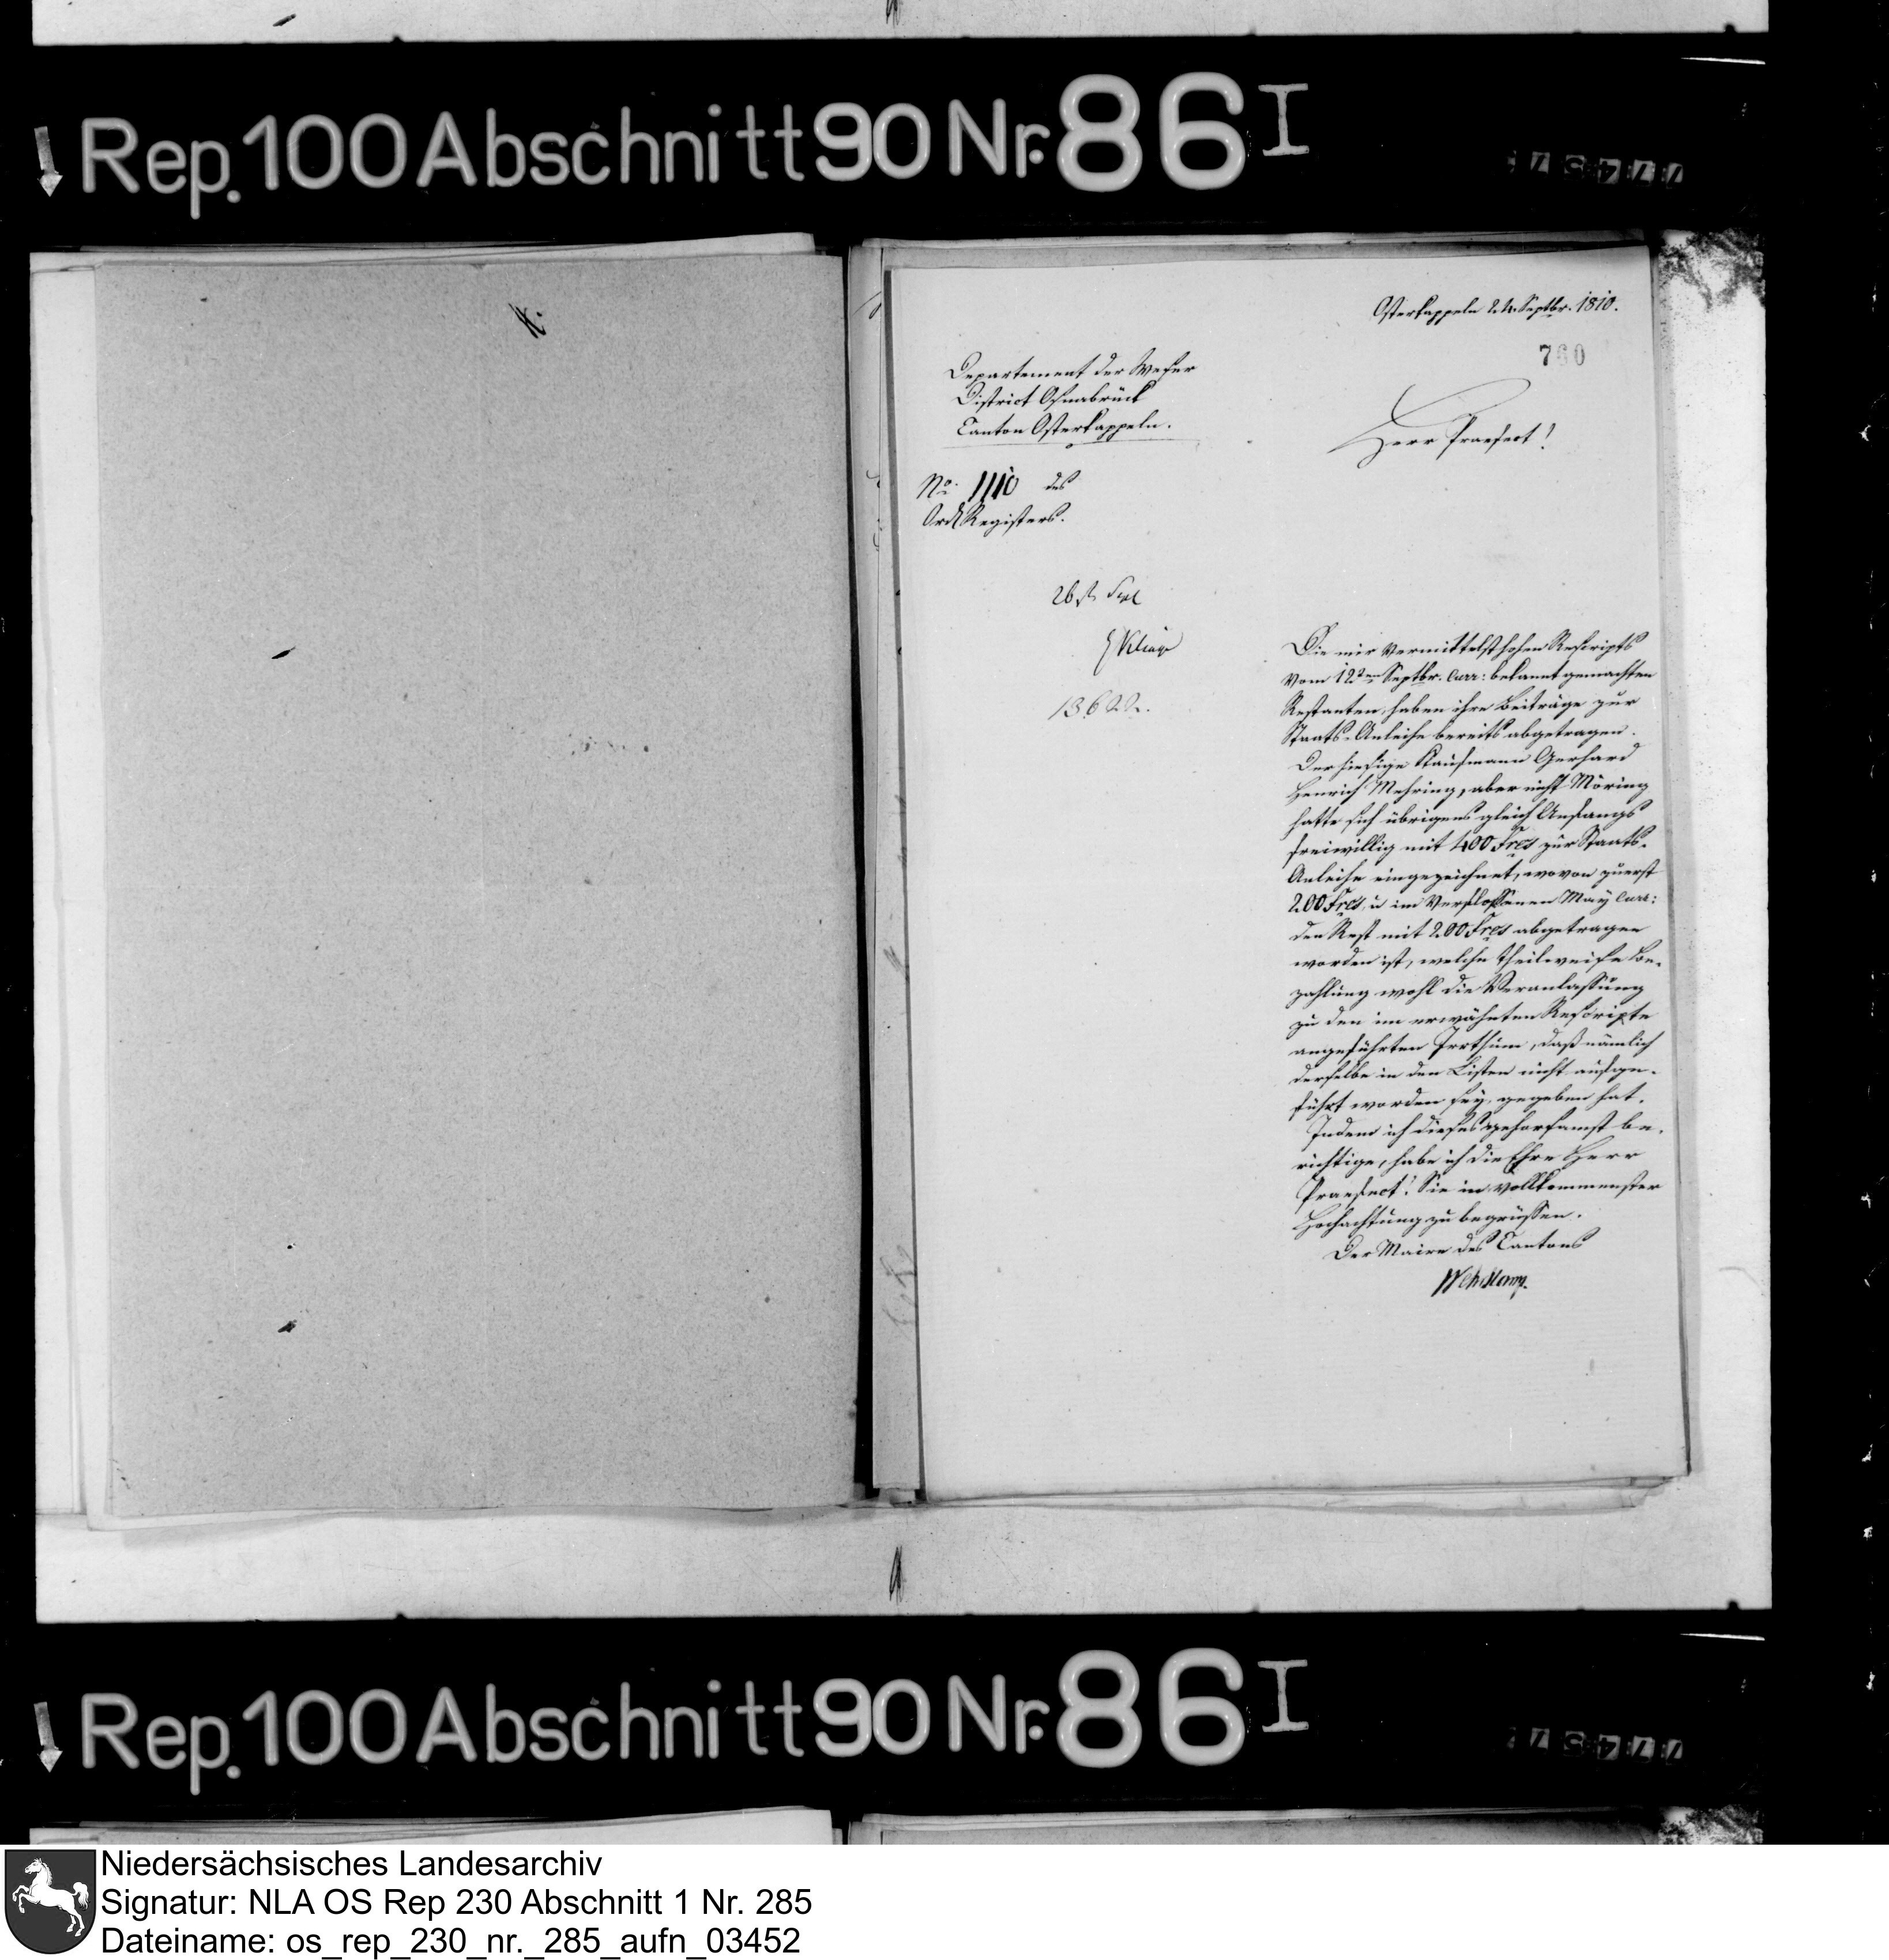 Rep. 100 Abschnitt 90 Nr. 86 I
Osterkappeln 24. Septbr. 1810.
760
Departement der Weser
District Osnabrück
Canton Osterkappeln.
Herr Praefect!
No. 1110 des
Registers.
26st
13622.
Die mir vermittelst hohen Rescripts
vom 12ten Septbr. curr: bekannt gemachten
Restanten, haben ihre Beiträge zur
Staats-Anleihe bereits abgetragen.
Der hiesige Kaufmann Gerhard
Henrich Mehring, aber nicht Möring
hatte sich übrigens gleich Anfangs
freiwillig mit 400 Frcs zur Staats-
Anleihe eingezeichnet, wovon zuerst
200 Frcs, u im verflossenen May curr:
den Rest mit 200 Frcs abgetragen
worden ist, welche theilweise Be-
zahlung wohl die Veranlassung
zu den im erwähnten Rescripte
angeführten Irrthum, daß nämlich
derselbe in den Listen nicht aufge-
führt worden sey, gegeben hat.
Indem ich dieses gehorsamst be-
richtige, habe ich die Ehre Herr
Praefect! Sie in vollkommenster
Hochachtung zu begrüssen.
Der Maire des Cantons
Rep. 100 Abschnitt 90 Nr. 86 I
Niedersächsisches Landesarchiv
Signatur: NLA OS Rep 230 Abschnitt 1 Nr. 285
Dateiname: os_rep_230_nr._285_aufn_03452